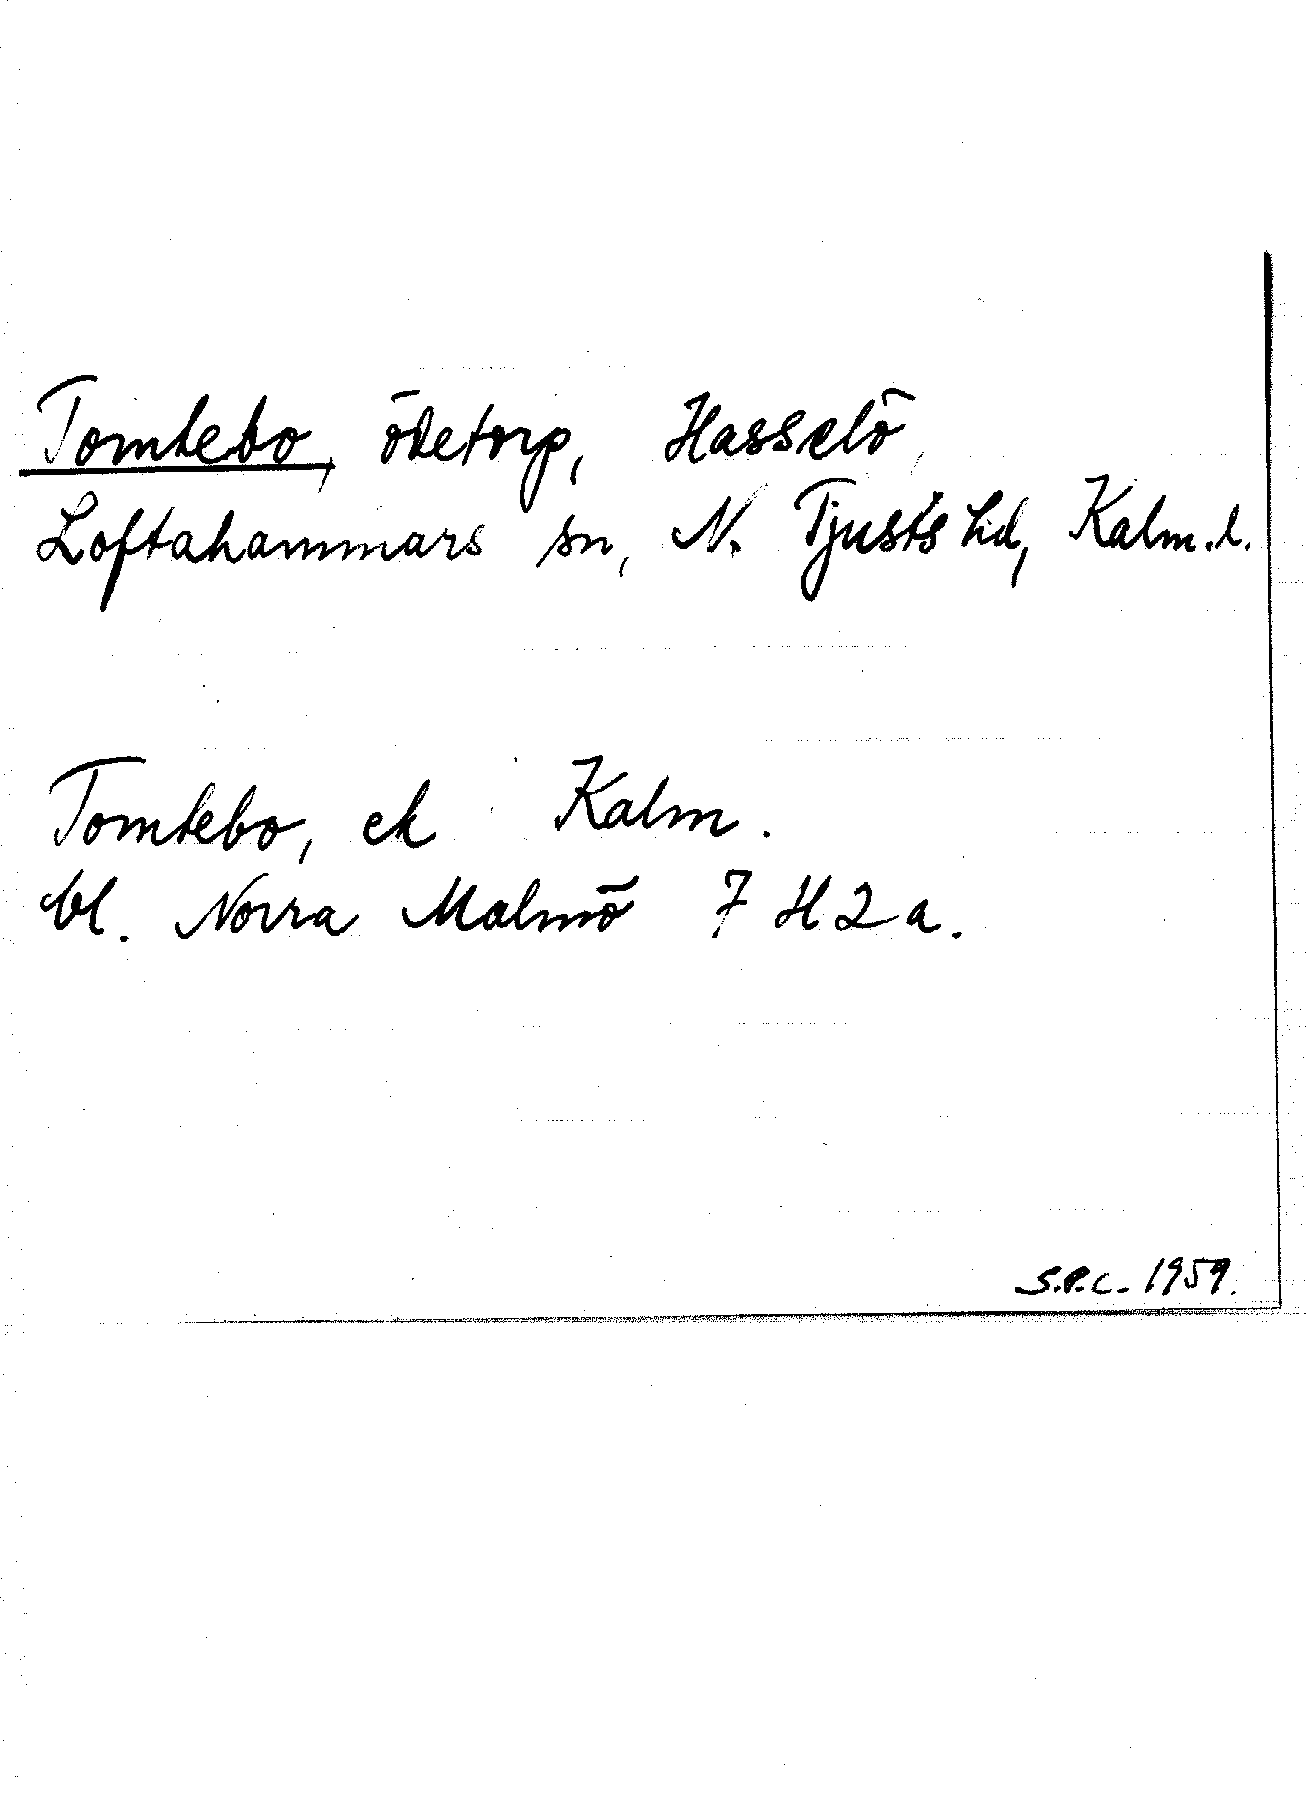 Tomtebo, ödetorp, Hasselö,
Loftahammars sn, N. Tjusts hd, Kalm. l.
Tomtebo, ek Kalm.
bl. Norra Malmö 7 H 2 a.
S.P.C. 1959.